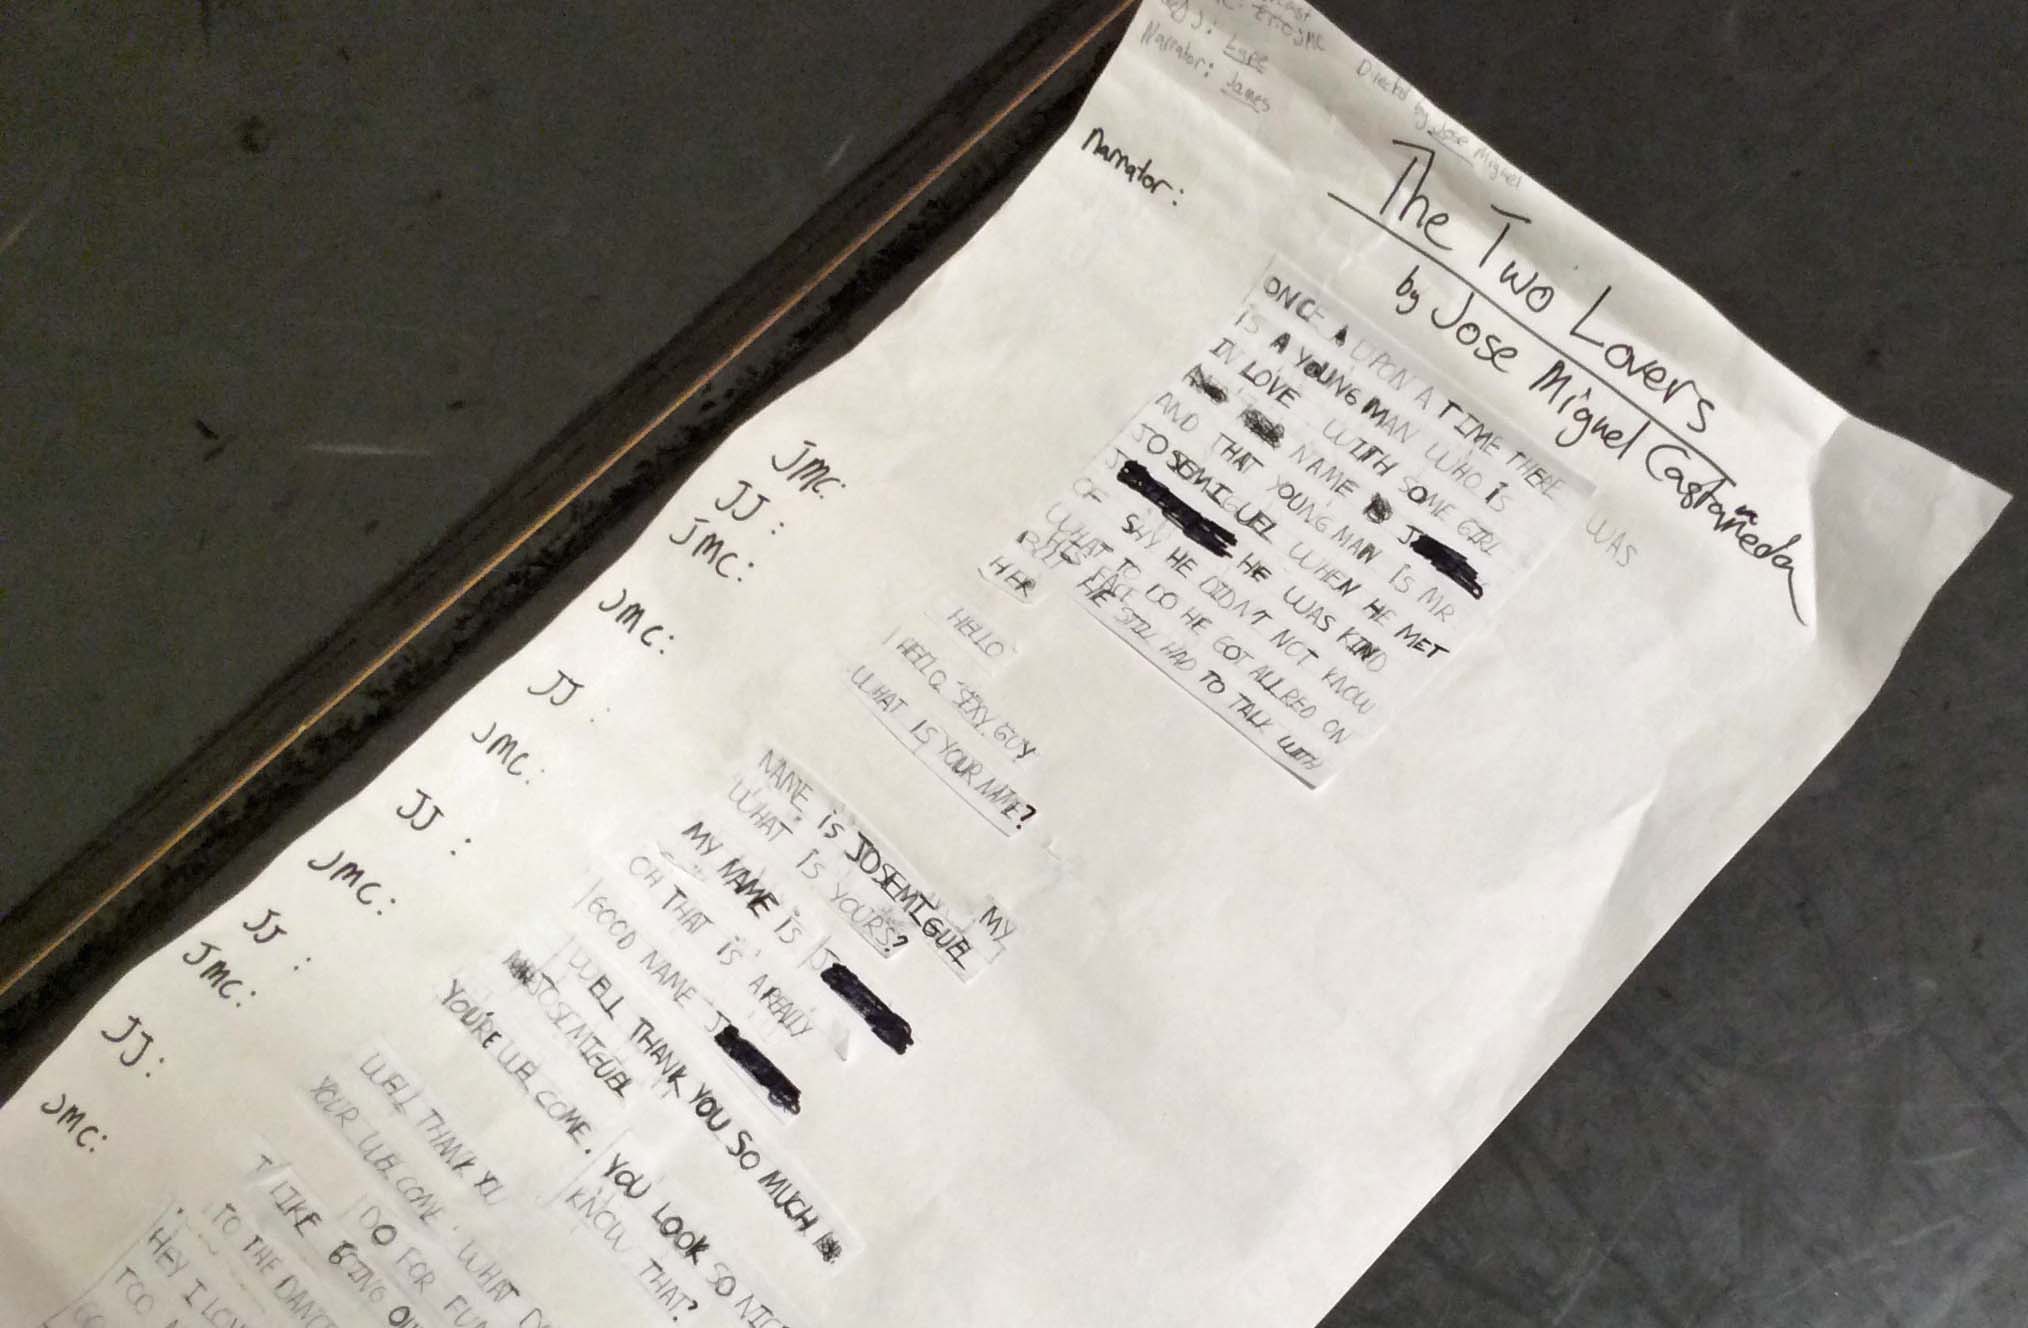 JJ: Lupe
Narrator: James
Directed by Jose Miguel
The Two Lovers
by Jose Miguel Castañeda
Narrator:
ONCE A UPON A TIME THERE WAS
IS A YOUNG MAN WHO IS
IN LOVE WITH SOME GIRL
NAME J
AND THAT YOUNG MAN IS MR
JOSEMIGUEL WHEN HE MET
J HE WAS KIND
OF SHY HE DIDN'T NOT KNOW
WHAT TO DO HE GOT ALL RED ON
HIS FACE
BUT HE STILL HAD TO TALK WITH
HER
JMC: HELLO
JJ: HELLO SEXY GUY
JMC: WHAT IS YOUR NAME?
JMC: MY
NAME IS JOSEMIGUEL
WHAT IS YOURS?
JJ: MY NAME IS J
JMC: OH THAT IS A REALLY
GOOD NAME J
JJ: WELL THANK YOU SO MUCH
JOSEMIGUEL
JMC: YOU'RE WELCOME. YOU LOOK SO NICE
KNOW THAT?
JJ: WELL THANK YU
JMC: YOUR WELCOME. WHAT DO
DO FOR FUN
JJ: I LIKE GOING OUT
TO THE DANCE
JMC: HEY I LOV
TOO